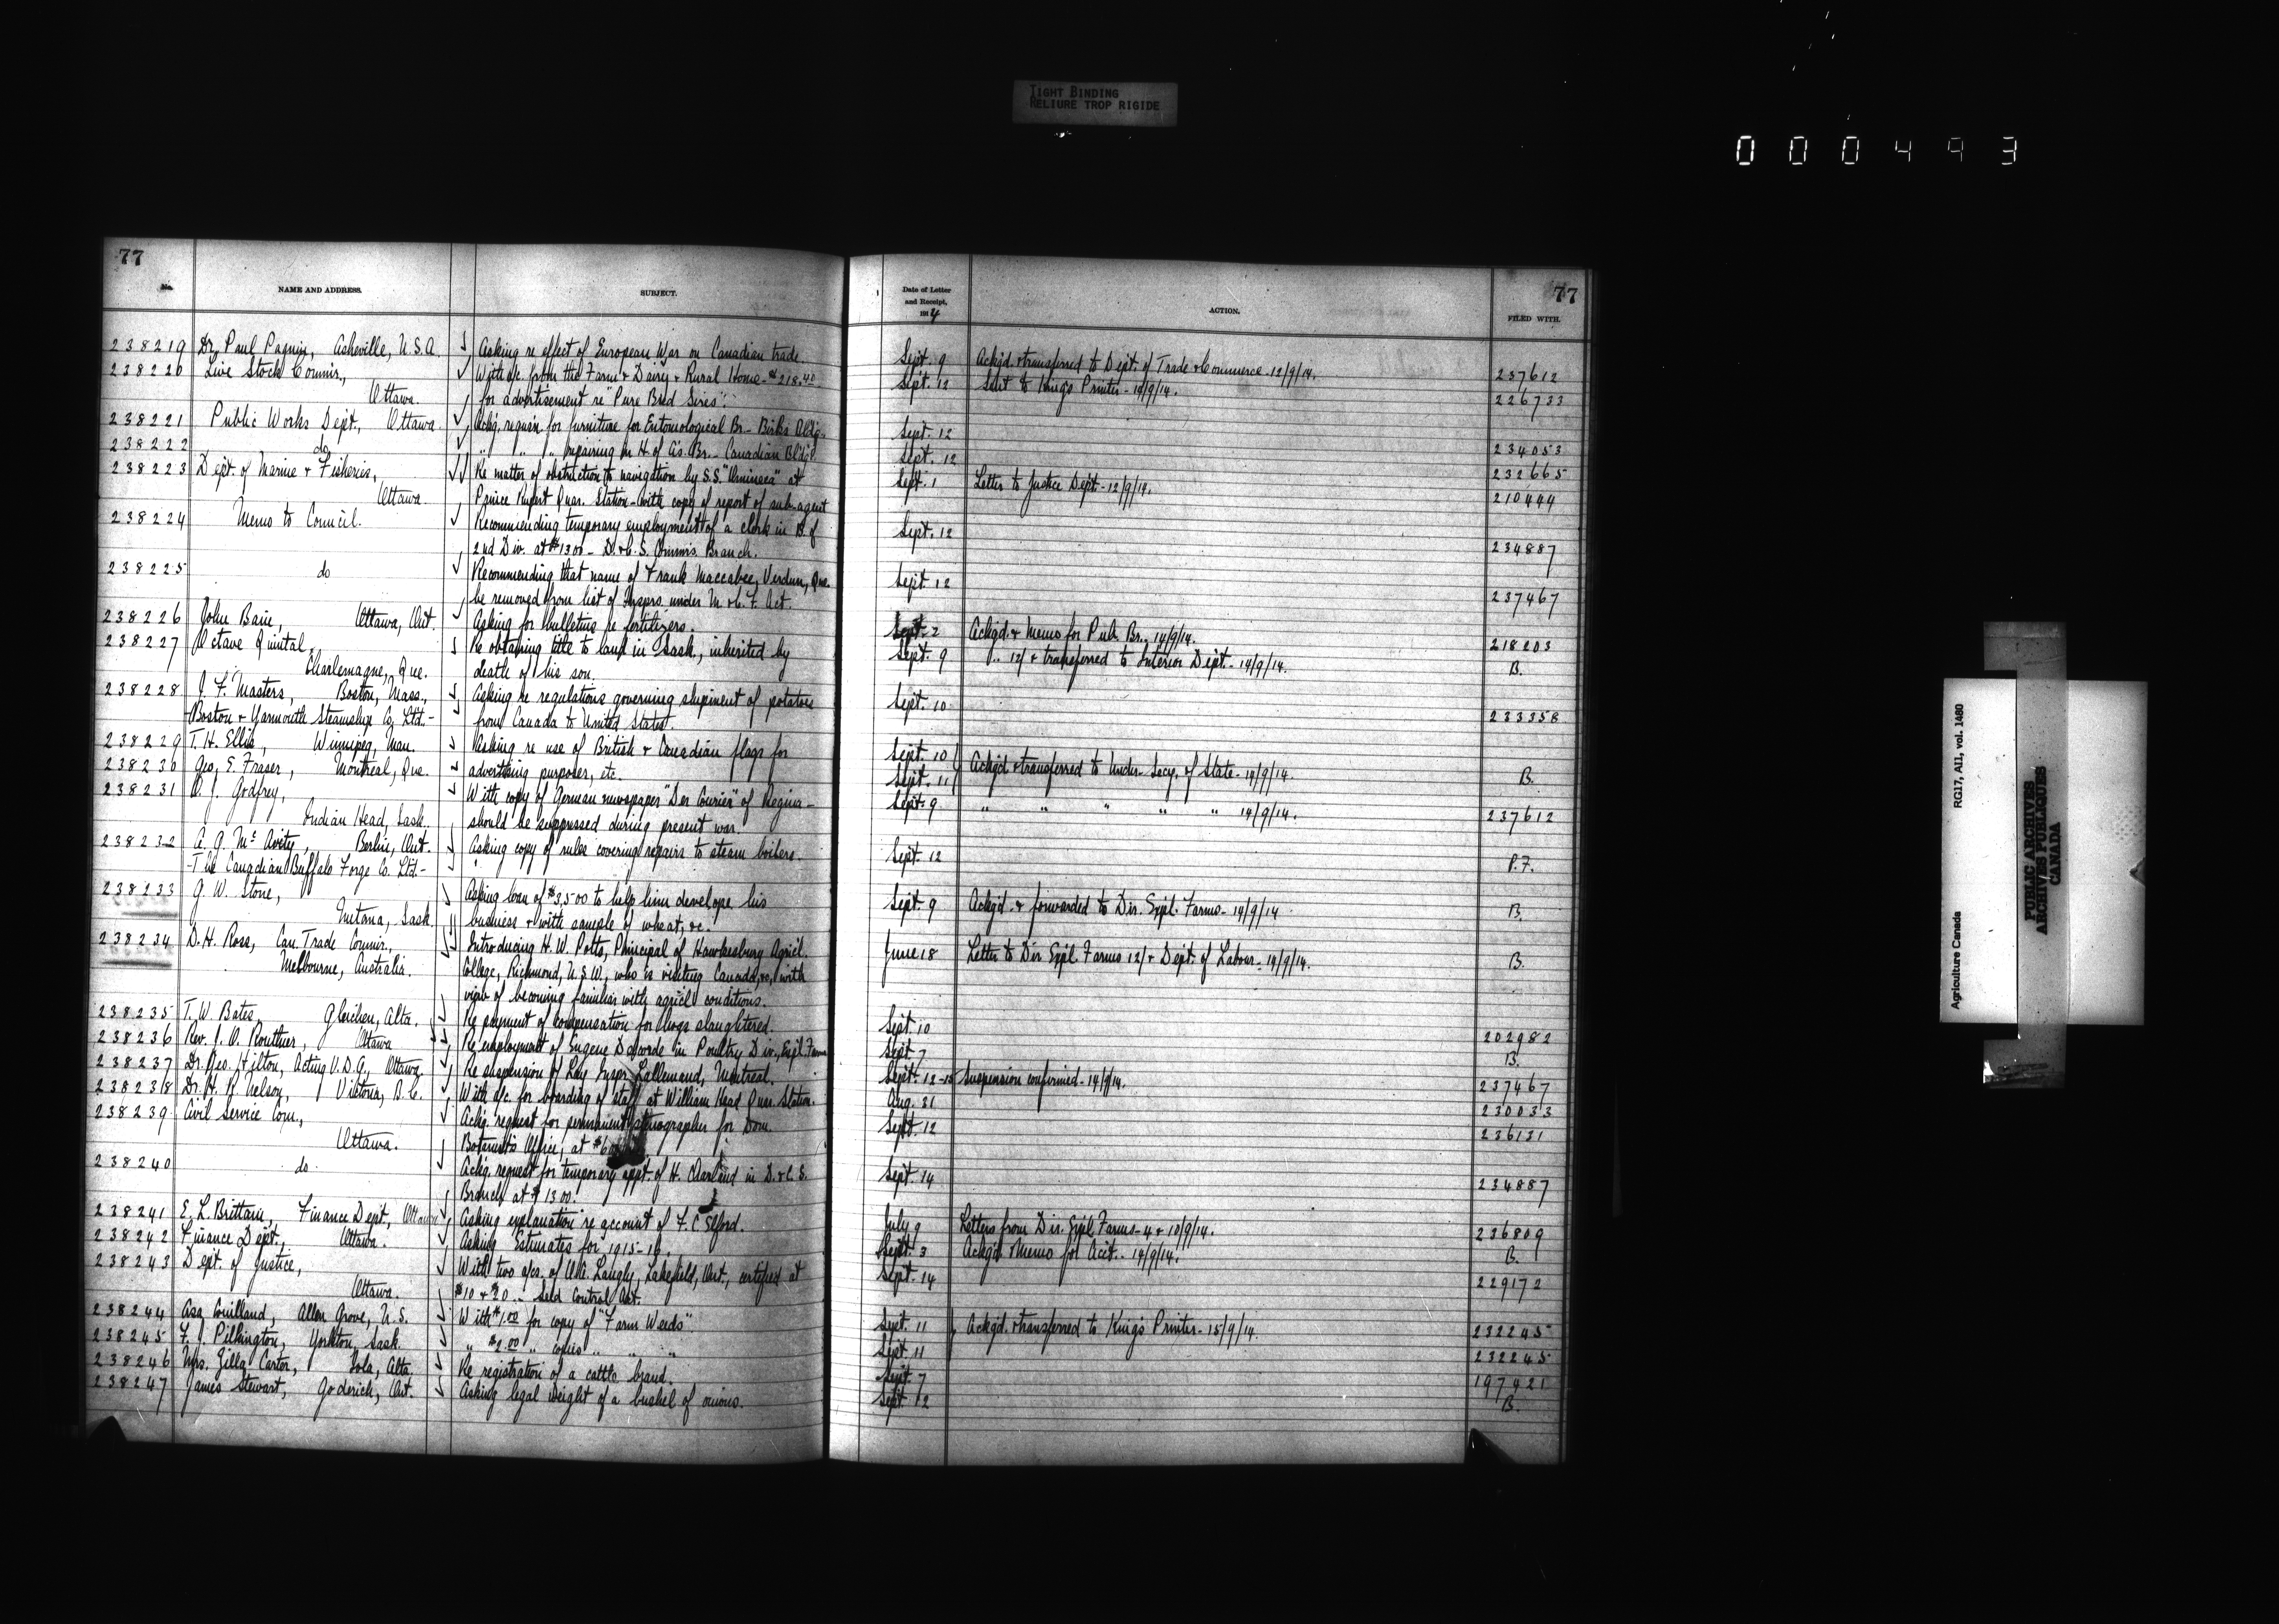 TIGHT BINDING
RELIURE TROP RIGIDE
000493
77
No.
NAME AND ADDRESS.
SUBJECT.
238219 Dr. Paul Paquin, Asheville, U.S.A. Asking re effect of European War on Canadian trade.
238220 Live Stock Commr., With a/c. from the "Farm & Dairy & Rural Home - $218.40
Ottawa. for advertisement re "Pure Bred Sires".
238221 Public Works Dept., Ottawa. Ackg. requisn for furniture for Entomological Br. - Birks Bldg.
238222 do " " " repairing in H. of A's. Br. - Canadian Bldg.
238223 Dept. of Marine & Fisheries, Re matter of obstruction to navigation by S.S. "Omineca" at
Ottawa. Prince Rupert Quar. Station - with copy of report of sub-agent
238224 Memo to Council. Recommending temporary employment of a clerk in B. of
2nd Div. at $1300 - D. & C. S. Commrs. Branch.
238225 do Recommending that name of Frank Maccabee, Verdun, Que.
be removed from list of Insprs. under M. & C. F. Act.
238226 John Bain, Ottawa, Ont. Asking for bulletins re fertilizers.
238227 Octave Quintal, Re obtaining title to land in Sask., inherited by
Charlemagne, Que. death of his son.
238228 J. F. Masters, Boston, Mass., Asking re regulations governing shipment of potatoes
- Boston & Yarmouth Steamship Co. Ltd. - from Canada to United States.
238229 T. H. Ellis, Winnipeg, Man. Asking re use of British & Canadian flags for
238230 Geo. E. Fraser, Montreal, Que. advertising purposes, etc.
238231 A. J. Godfrey, With copy of German newspaper "Der Courier" of Regina -
Indian Head, Sask. should be suppressed during present war.
238232 A. G. McAvity, Berlin, Ont. Asking copy of rules covering repairs to steam boilers.
- The Canadian Buffalo Forge Co. Ltd. -
238233 G. W. Stone, Asking loan of $3,500 to help him develope his
Sask. business & with sample of wheat, &c.
238234 D. H. Ross, Can. Trade Commr., Introducing H. W. Potts, Principal of Hawkesbury Agricl.
Melbourne, Australia. College, Richmond, N.S.W., who is visiting Canada, &c, with
view of becoming familiar with agricl conditions.
238235 T. W. Bates, Gleichen, Alta. Re payment of compensation for hogs slaughtered.
238236 Rev. J. O. Routhier, Ottawa Re employment of Eugene in Poultry Div., Expl. Farm
238237 Dr. Geo. Hilton, Acting V.D.G., Ottawa. Re suspension of Lay Inspr. Lallemand, Montreal.
238238 Dr. H. R. Nelson, Victoria, B.C. With a/c. for boarding of staff at William Head Quar. Station.
238239 Civil Service Com., Ackg. request for permanent stenographer for Dom.
Ottawa. Botanist's Office, at
238240 do. Ackg. request for temporary appt. of H. Charland in D. & C. S.
Branch at $1300.
238241 E. L. Brittain, Finance Dept., Ottawa Asking explanation re account of F. C. Elford.
238242 Finance Dept., Ottawa. Asking Estimates for 1915-16.
238243 Dept. of Justice, With two a/cs. of Langly, Lakefield, Ont., certified at
Ottawa. $10 & $20 .. Seed Control Act.
238244 Asa Couilland, Allen Grove, U.S. With $1.00 for copy of "Farm Weeds".
238245 F. J. Pilkington, Yorkton, Sask. " $2.00 " copies " " "
238246 Mrs. Zilla Carter, Iola, Alta Re registration of a cattle brand.
238247 James Stewart, Goderich, Ont. Asking legal weight of a bushel of onions.
77
Date of Letter
and Receipt,
1914
ACTION.
FILED WITH.
Sept. 9 Ackgd. & transferred to Dept. of Trade & Commerce - 12/9/14. 237612
Sept. 12 Sent to King's Printer - 14/9/14. 226733
Sept. 12 234053
Sept. 12 232665
Sept. 1 Letter to Justice Dept. - 12/9/14. 210444
Sept. 12 234887
Sept. 12 237467
Sept. 2 Ackgd. & Memo for Pub. Br.. 14/9/14. 218203
Sept. 9 " 12/ & transferred to Interior Dept. - 14/9/14. B.
Sept. 10 233358
Sept. 10
Sept. 11 Ackgd. & transferred to Under-Secy. of State - 14/9/14. B.
Sept. 9 " " " " " 14/9/14. 237612
Sept. 12 P.F.
Sept. 9 Ackgd. & forwarded to Dir. Expl. Farms - 14/9/14 B.
June 18 Letter to Dir. Expl. Farms 12/ & Dept. of Labour - 14/9/14. B.
Sept. 10 202982
Sept. 7 B.
Sept. 12-15 Suspension confirmed - 14/9/14. 237467
Aug. 31 230033
Sept. 12 236131
Sept. 14 234887
July 9 Letters from Dir. Expl. Farms - 4 & 10/9/14. 236809
Sept. 3 Ackgd. & Memo for Acct.. 14/9/14. B.
Sept. 14 229172
Sept. 11 Ackgd. & transferred to King's Printer - 15/9/14. 232245
Sept. 11 232245
Sept. 7 197421
Sept. 12 B.
Agriculture Canada RG17, AII, vol. 1480
PUBLIC ARCHIVES
ARCHIVES PUBLIQUES
CANADA